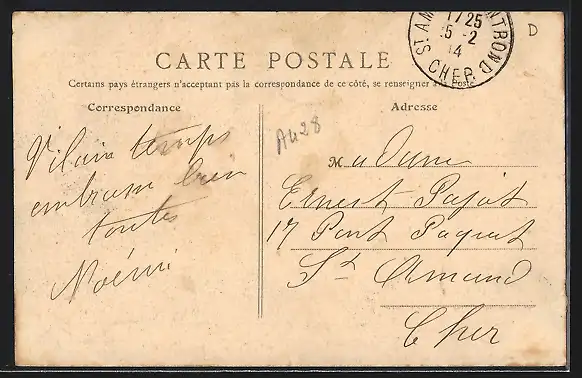 ST AMAND MONTROND
17/25
5-2
14
CHER
D
CARTE POSTALE
Certains pays étrangers n'acceptant pas la correspondance de ce côté, se renseigner à la Poste
Correspondance
Adresse
A428
Vilain temps
embrasse bien
toutes
Noémi
Madame
Ernest Pajot
17 Pont Paquet
St Amand
Cher